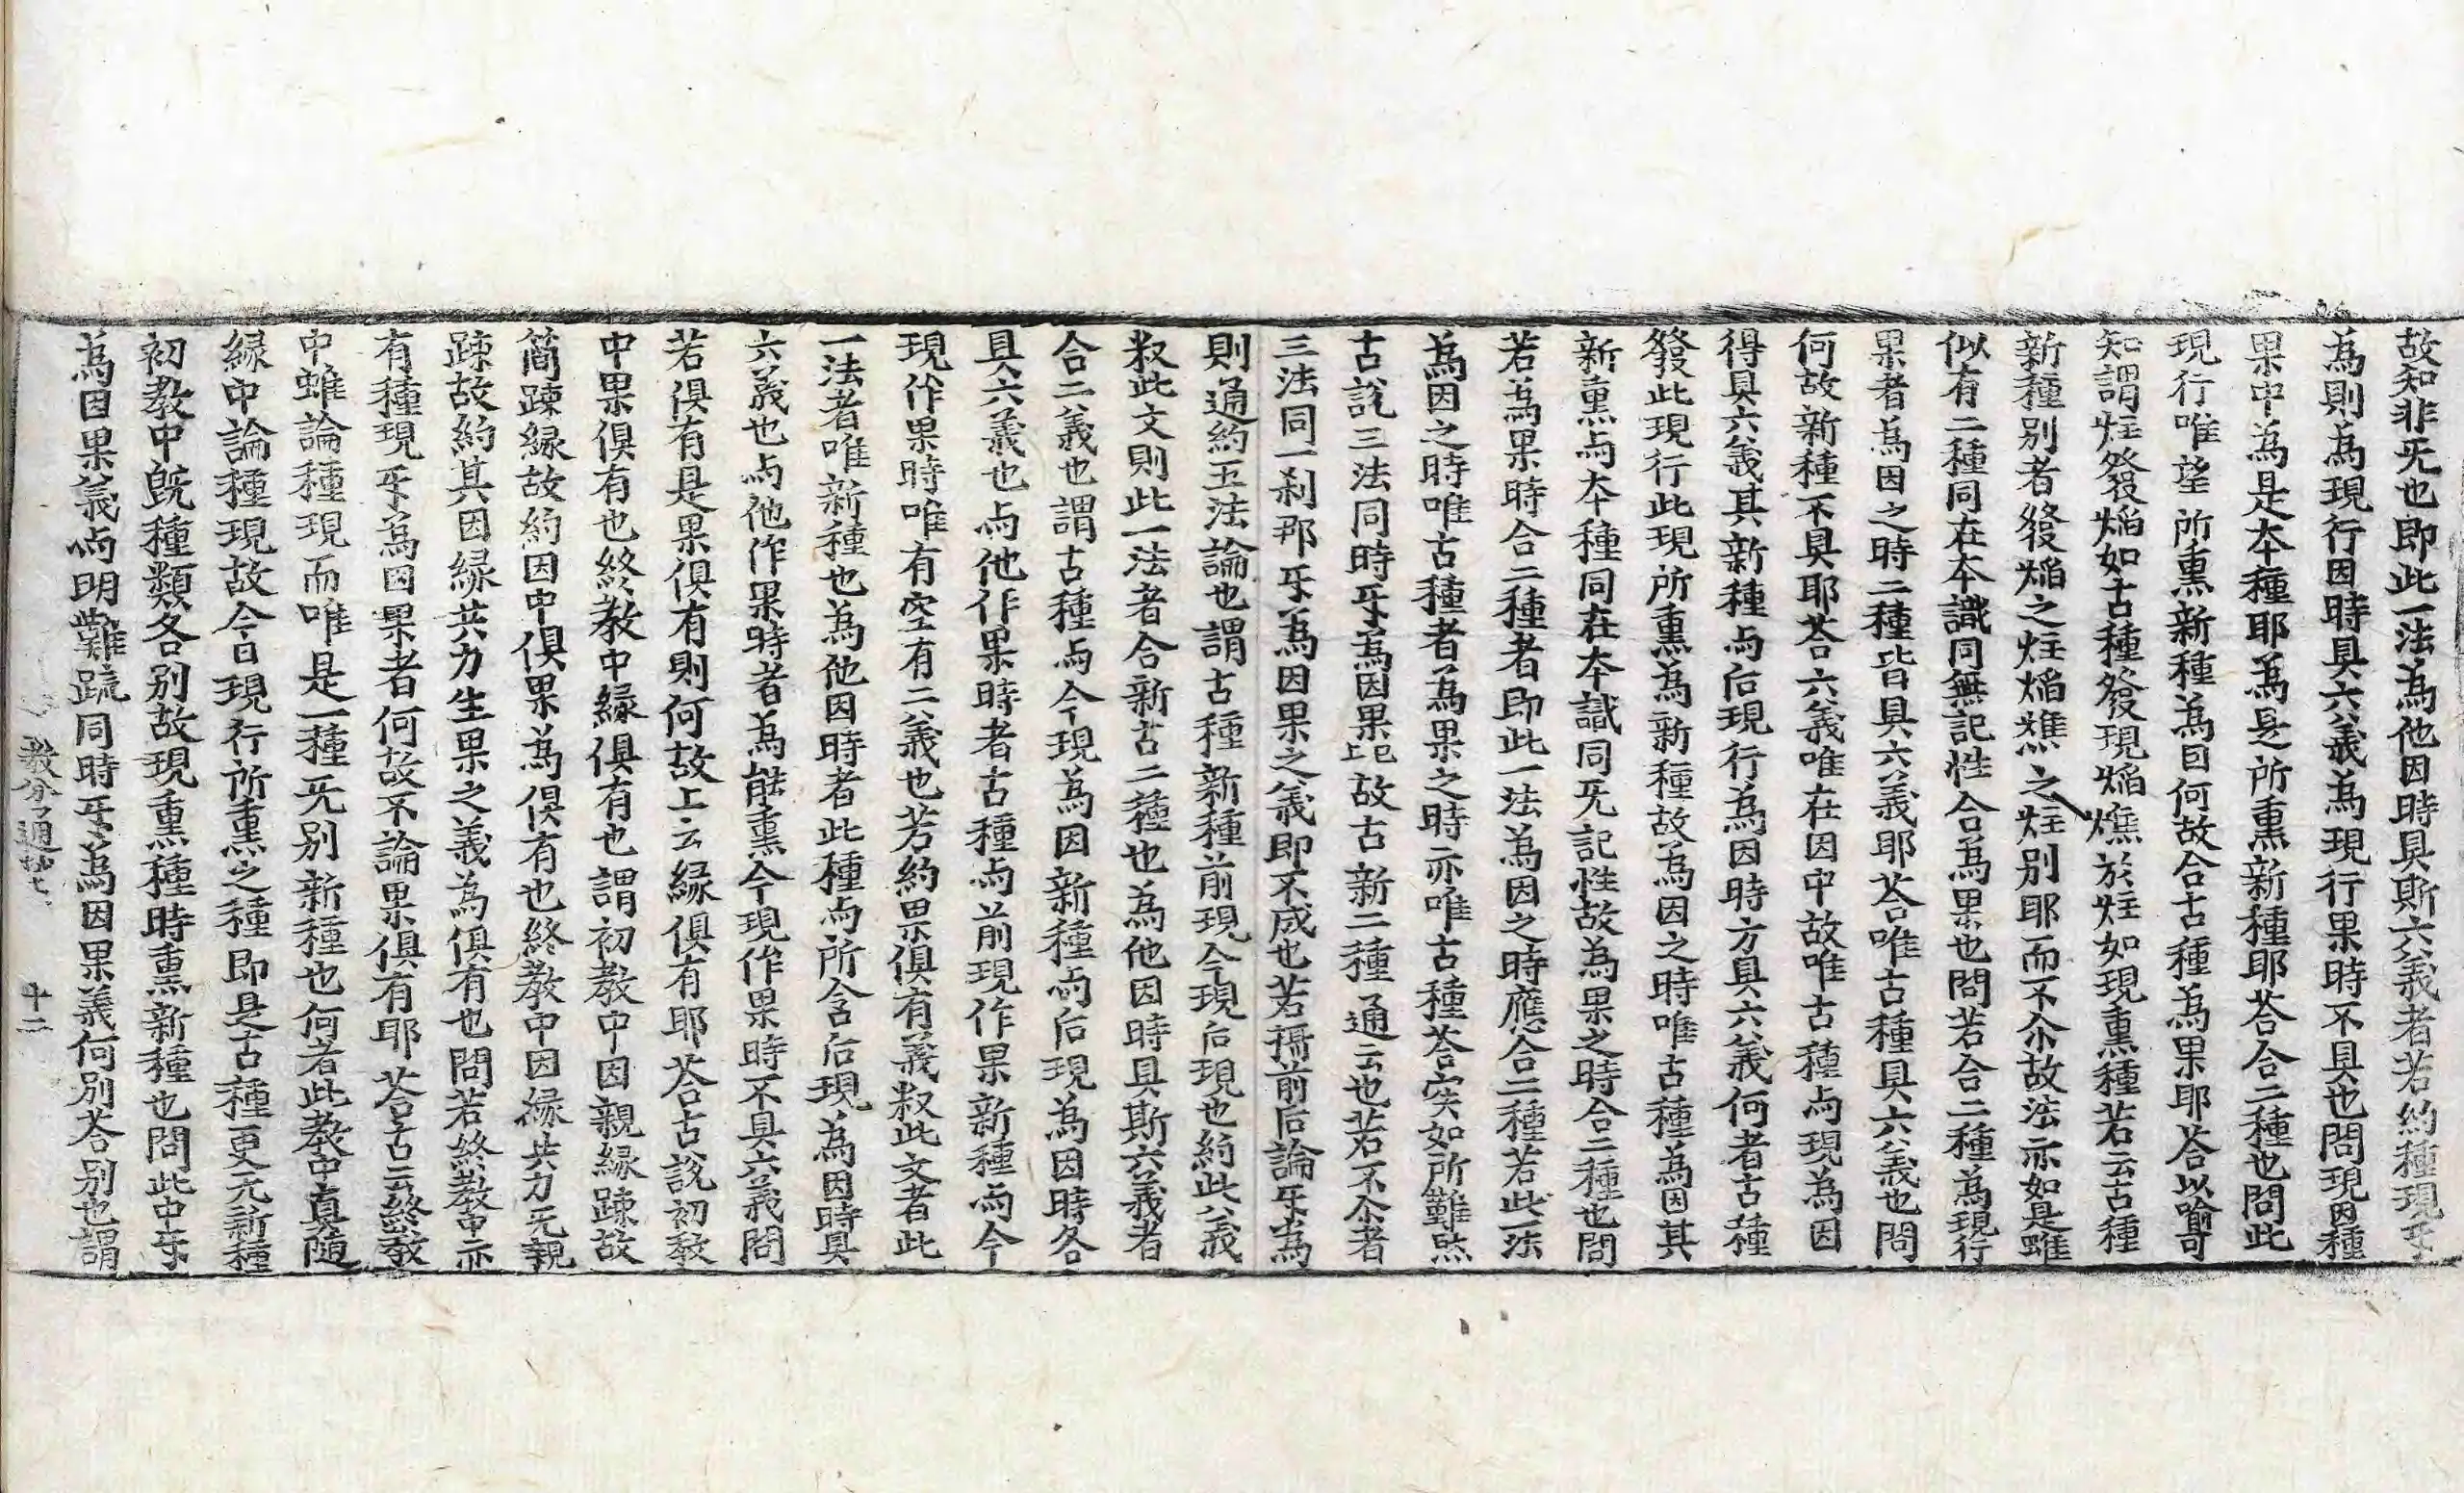 故知非旡也即此一法為他因時具斯六義者若約種現㸦
為則為現行因時具六義為現行果時不具也問現因種
果中為是本種耶為是所熏新種耶荅合二種也問此
現行唯望所熏新種為因何故合古種為果耶荅以喻可
知謂炷發焔如古種發現焔燋於炷如現熏種若云古種
新種別者發焔之炷焔燋之炷別耶而不尒故法亦如是雖
似有二種同在本識同無記性合為果也問若合二種為現行
果者為因之時二種皆具六義耶荅唯古種具六義也問
何故新種不具耶荅六義唯在因中故唯古種与現為因
得具六義其新種与后現行為因時方具六義何者古種
發此現行此現所熏為新種故為因之時唯古種為因其
新熏与本種同在本識同旡記性故為果之時合二種也問
若為果時合二種者即此一法為因之時應合二種若此一法
為因之時唯古種者為果之時亦唯古種荅実如所難然
古說三法同時㸦為因果上已故古新二種通云也若不尒者
三法同一刹那㸦為因果之義即不成也若攝前后論㸦為
則通約五法論也謂古種新種前現今現后現也約此六義
㪽此文則此一法者合新古二種也為他因時具斯六義者
合二義也謂古種与今現為因新種与后現為因時各
具六義也与他作果時者古種与前現作果新種与今
現作果時唯有空有二義也若約果俱有義㪽此文者此
一法者唯新種也為他因時者此種与所含后現為因時具
六義也与他作果時者為能熏今現作果時不具六義問
若俱有是果俱有則何故上云縁俱有耶荅古說初教
中果俱有也終教中縁俱有也謂初教中因親縁踈故
簡踈縁故約因中俱果為俱有也終教中因縁共力旡親
踈故約其因縁共力生果之義為俱有也問若終教中亦
有種現㸦為因果者何故不論果俱有耶荅古云終教
中雖論種現而唯是一種旡别新種也何者此教中真隨
縁中論種現故今日現行所熏之種即是古種更元新種
初教中旣種類各別故現熏種時熏新種也問此中㸦
為因果義与明難䟽同時㸦為因果義何別荅別也謂
教分円通抄七
十二